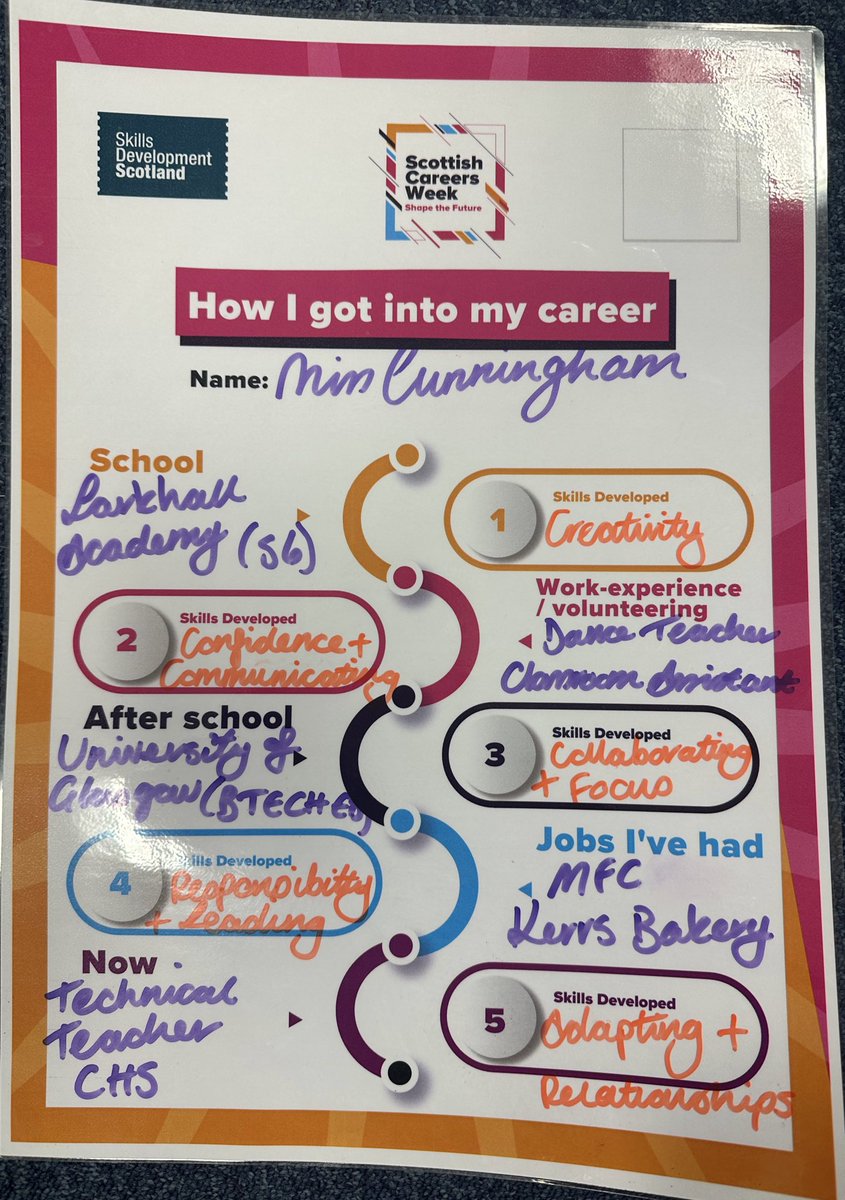 Skills
Development
Scotland
Scottish
Careers
Week
Shape the Future
How I got into my career
Name: Miss Cunningham
School
Larkhall
Academy (S6)
1
Skills Developed
Creativity
Work-experience
/ volunteering
Dance Teacher
Classroom Assistant
2
Skills Developed
Confidence +
Communicating
After school
University of
Glasgow (BTECHED)
3
Skills Developed
Collaborating
+ Focus
Jobs I've had
MFC
Kerrs Bakery
4
Skills Developed
Responsibility
+ Leading
Now
Technical
Teacher
CHS
5
Skills Developed
Adapting +
Relationships